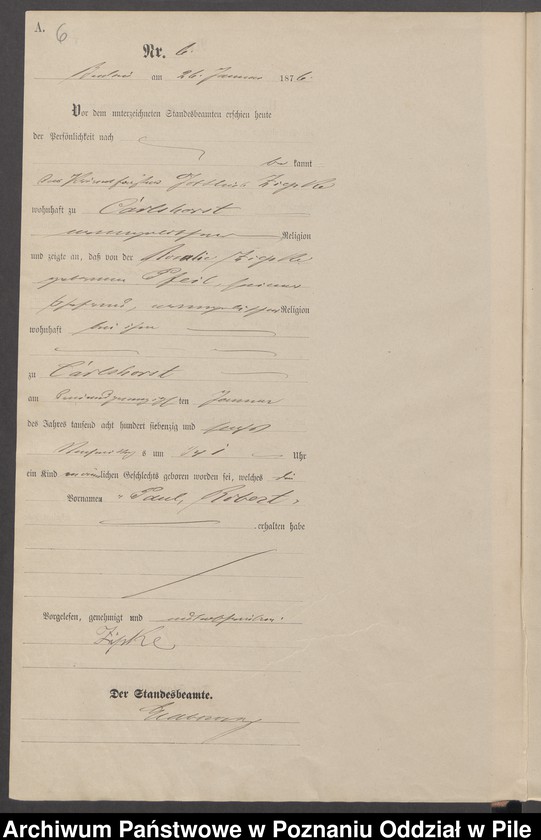 A. 6
Nr. 6.
am 26. Januar 1876.
Vor dem unterzeichneten Standesbeamten erschien heute
der Persönlichkeit nach
be kannt
wohnhaft zu Carlshorst
evangelischer Religion
und zeigte an, daß von der
geborenen Pfeil, seiner
Ehefrau, evangelischer Religion
wohnhaft bei ihm
zu Carlshorst
am ten Januar
des Jahres tausend acht hundert siebenzig und sechs
Nachmittags um Uhr
ein Kind männlichen Geschlechts geboren worden sei, welches die
Vornamen Paul, Robert
erhalten habe
Vorgelesen, genehmigt und unterschrieben.
Zipke
Der Standesbeamte.
Archiwum Państwowe w Poznaniu Oddział w Pile